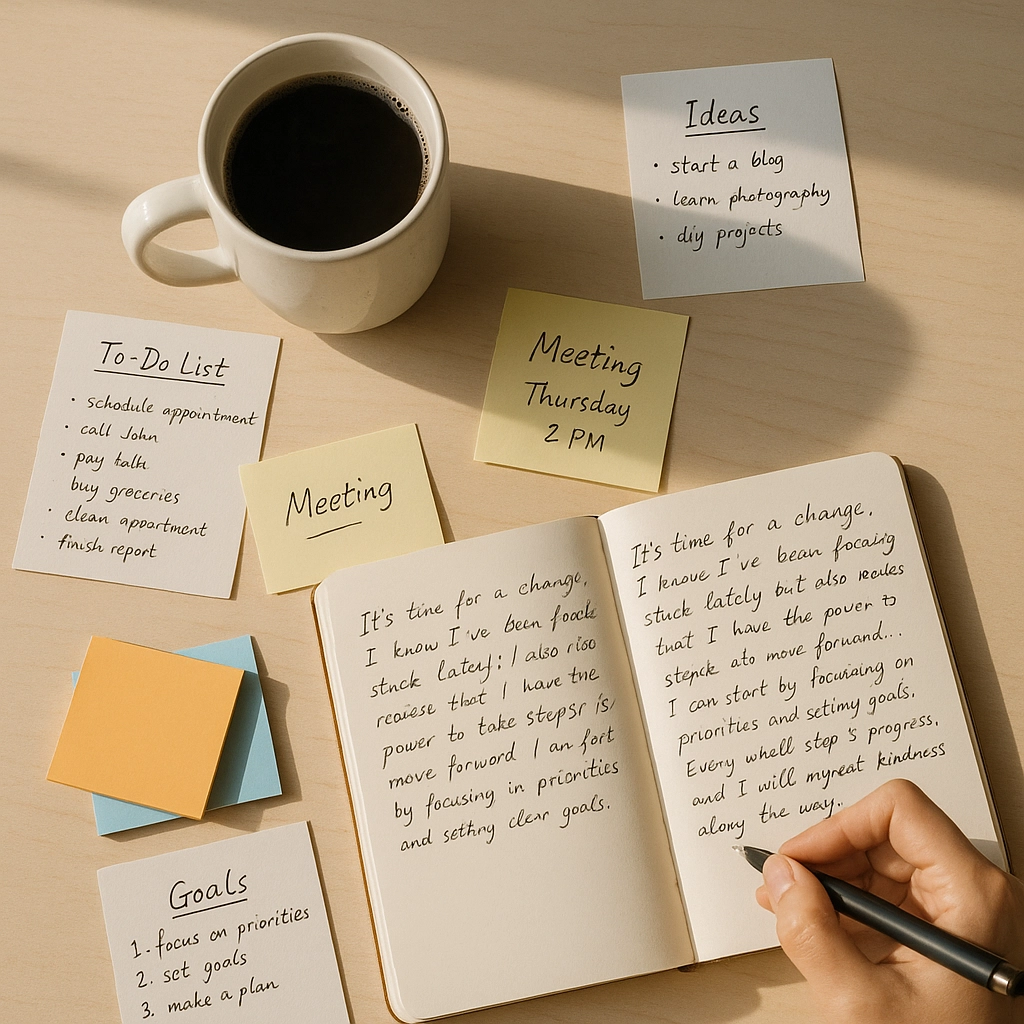 Ideas
• start a blog
• learn photography
• diy projects
To-Do List
• schodule appointment
• call John
• pay talk
buy groceries
• clean appartment
• finish report
Meeting
Thursday
2 PM
Meeting
It's tine for a change,
I know I've been
stnck latery: I also riso
reaiese that I have tne
power to take stepsr is
move forword I an fort
by focusing in priorities
and setting clear goals.
It's time for a change,
I know I've bean
stuck latcly but also
that I have the power to
ato move forward...
I can start by on
priorities and goals,
Every whell step 's progress,
and I will kindness
along the way.
Goals
1. focus on priorities
2. set goals
3. make a plan